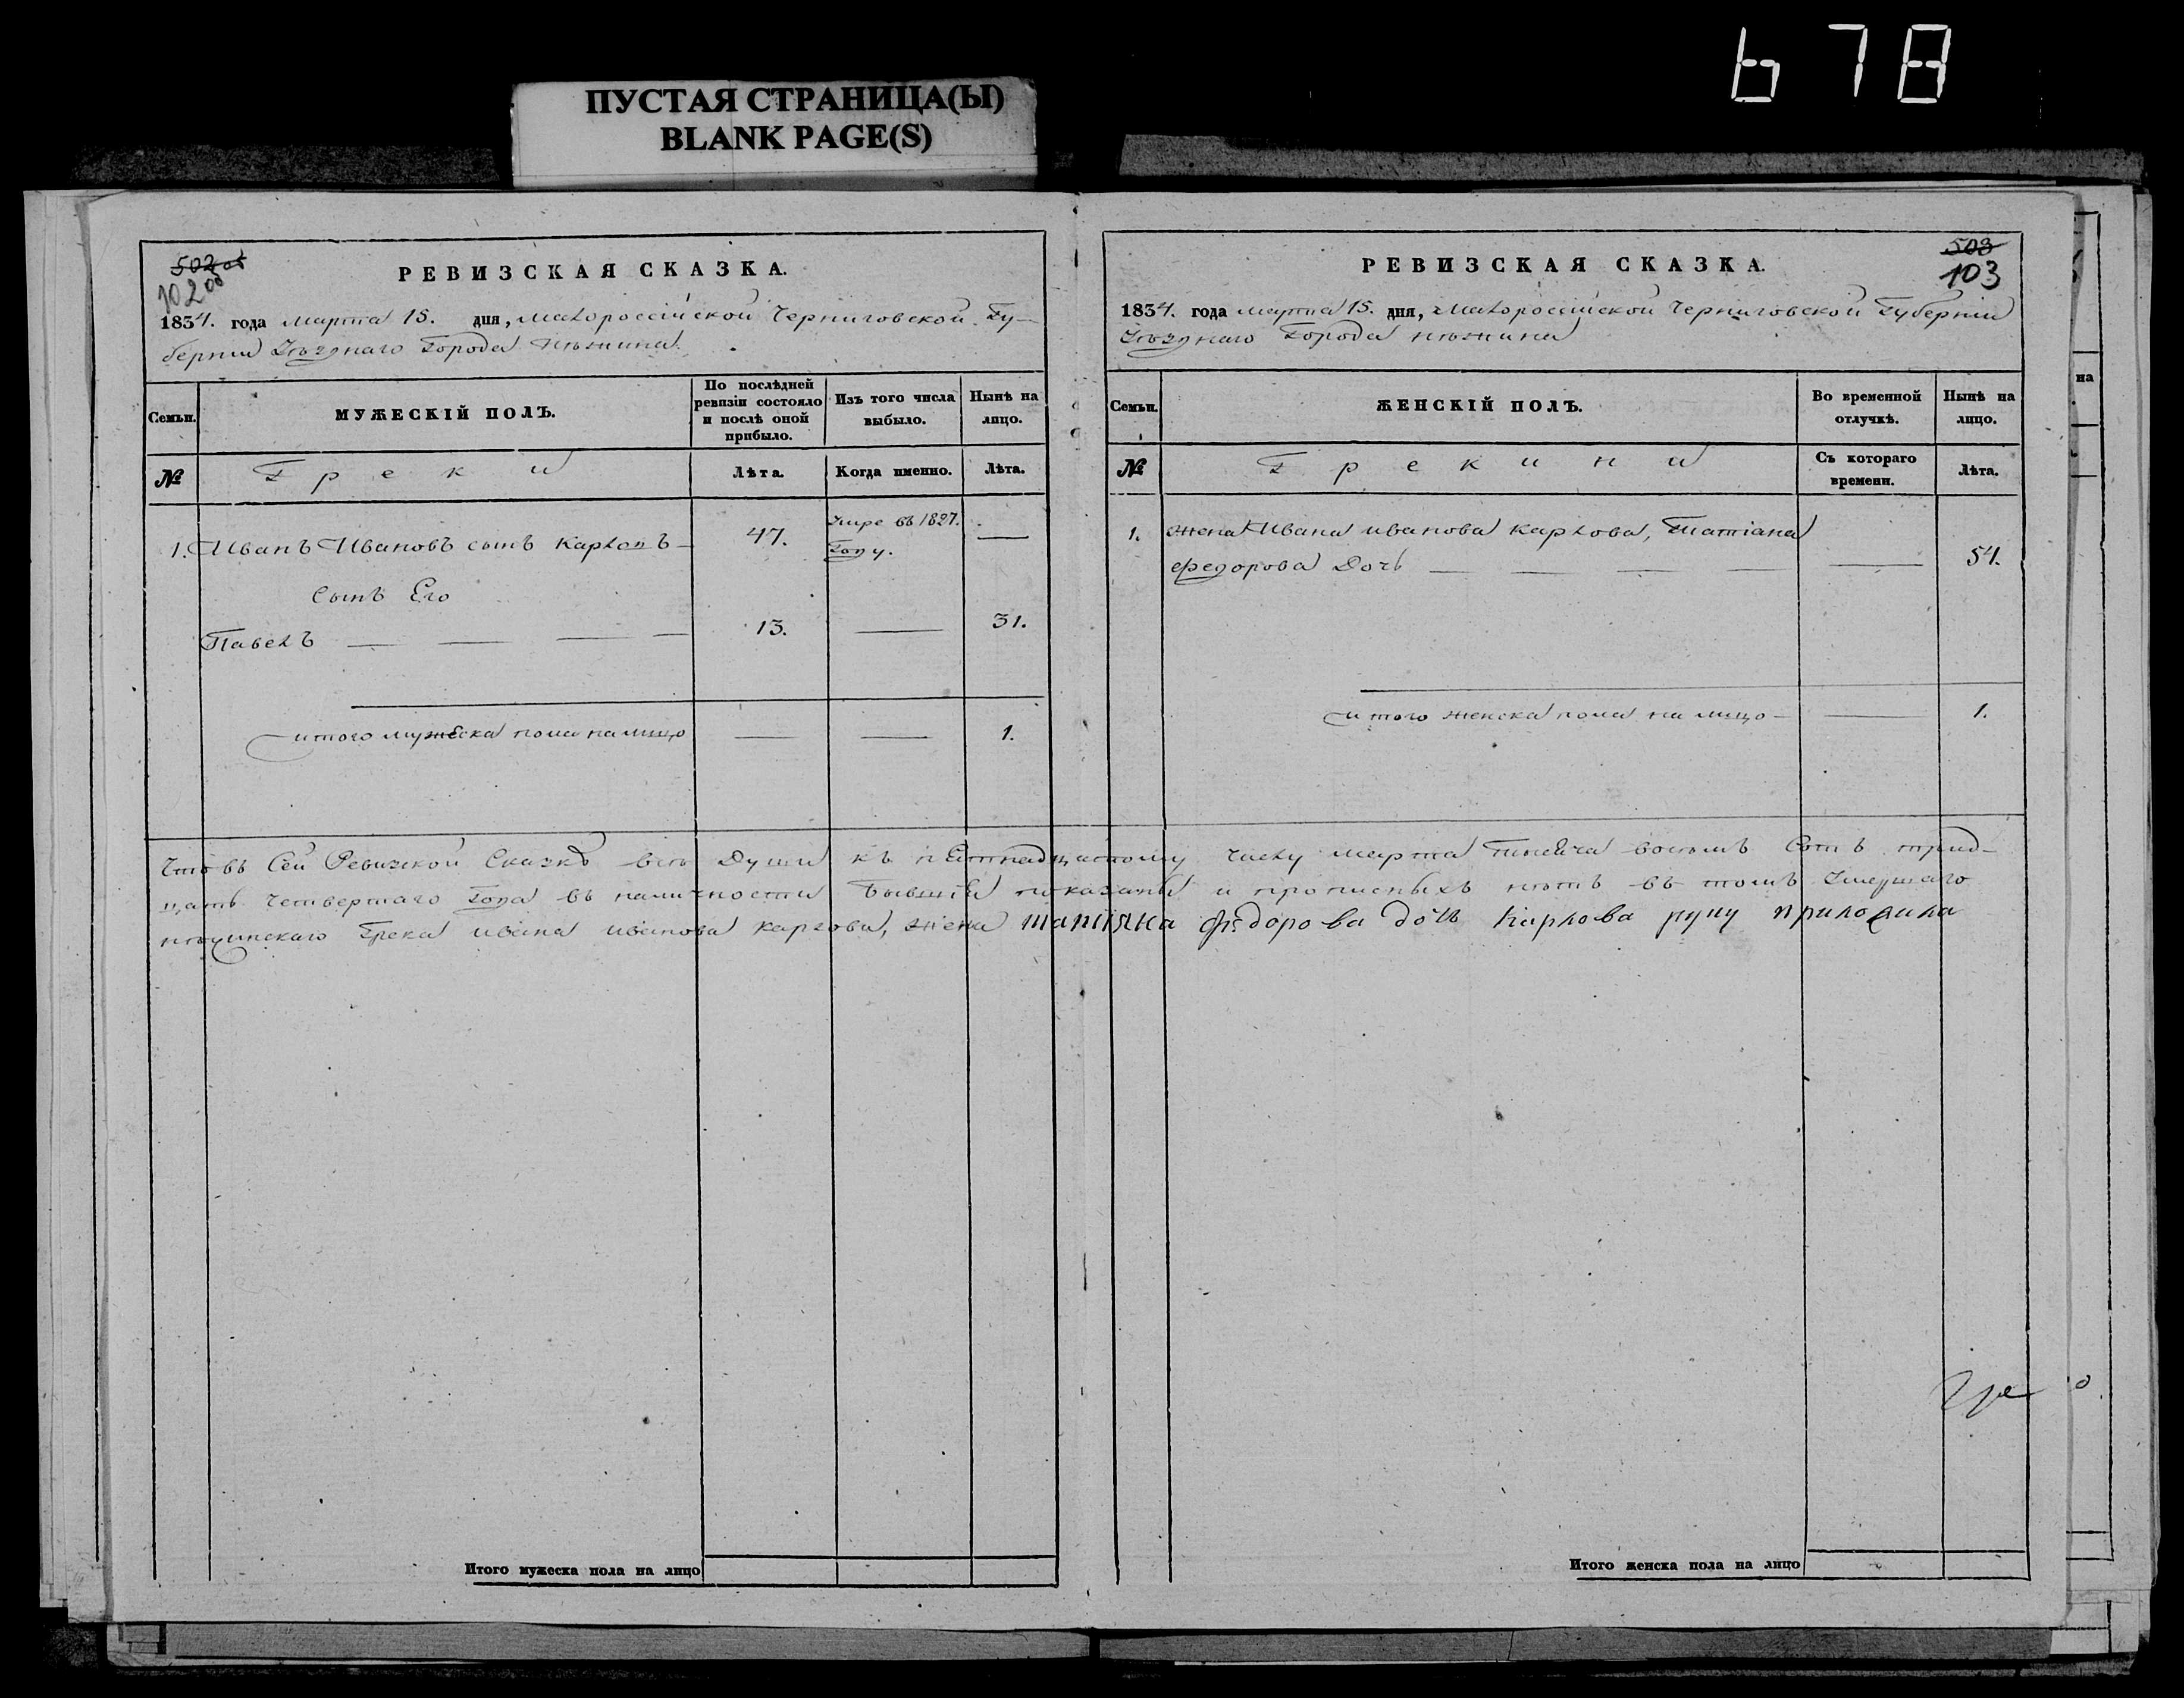 678
ПУСТАЯ СТРАНИЦА(Ы)
BLANK PAGE(S)
502 об
102 об
РЕВИЗСКАЯ СКАЗКА.
1834. года марта 15. дня, малороссійской Черниговской Гу-
берніи Уѣзднаго Города Нѣжина
Семьи.
МУЖЕСКІЙ ПОЛЪ.
По послѣдней ревизіи состояло и послѣ оной прибыло.
Изъ того числа выбыло.
Нынѣ на лицо.
№
Греки
Лѣта.
Когда именно.
Лѣта.
1. Иванъ Ивановъ сынъ Карповъ 47. Умре въ 1827. Году.
Сынъ Его
Павелъ 13. 31.
итого мужеска пола на лицо 1.
503
103
РЕВИЗСКАЯ СКАЗКА.
1834. года марта 15. дня, Малороссійской Черниговской Губерніи
Уѣзднаго Города нѣжина
Семьи.
ЖЕНСКІЙ ПОЛЪ.
Во временной отлучкѣ.
Нынѣ на лицо.
№
Грекини
Съ котораго времени.
Лѣта.
1. Жена Ивана иванова карпова, Татіана
федорова Дочь 54.
итого женска пола на лицо 1.
Что въ Сей Ревизской Сказкѣ всѣ Души къ пятнадцатому числу марта тысяча восемь Сотъ трид-
цать четвертаго Года въ наличности Бывшіе показаны и прописныхъ нѣтъ въ томъ Умершаго
нѣжинскаго Грека ивана иванова карпова, жена татіяна федорова дочь Карпова руку приложила
Гре
Итого мужеска пола на лицо
Итого женска пола на лицо
на